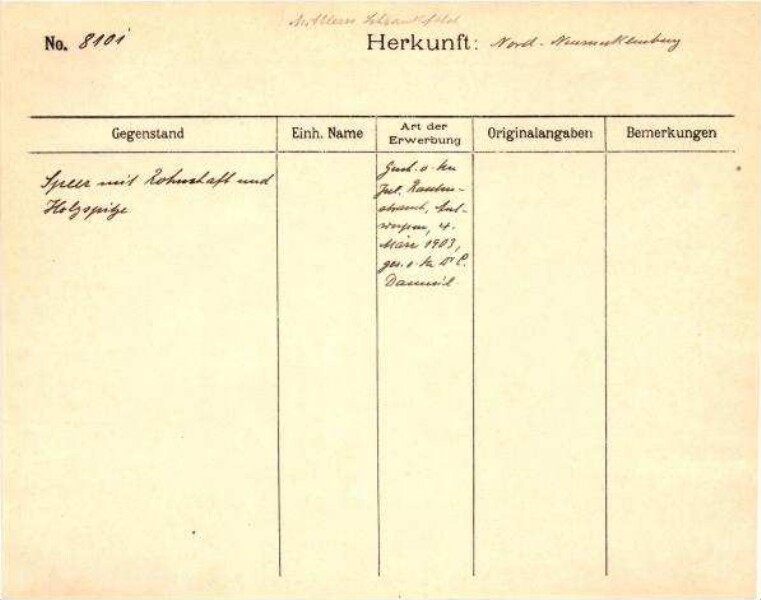 Mittleres Schrankfeld
No. 8101
Herkunft: Nord-Neumecklenburg
Gegenstand
Einh. Name
Art der Erwerbung
Originalangaben
Bemerkungen
Speer mit Rohrschaft und
Holzspitze
Gesch. v. Hn
Jul.
Ant-
werpen, 4.
März 1903,
ges. v. Hn Dr C.
Danneil